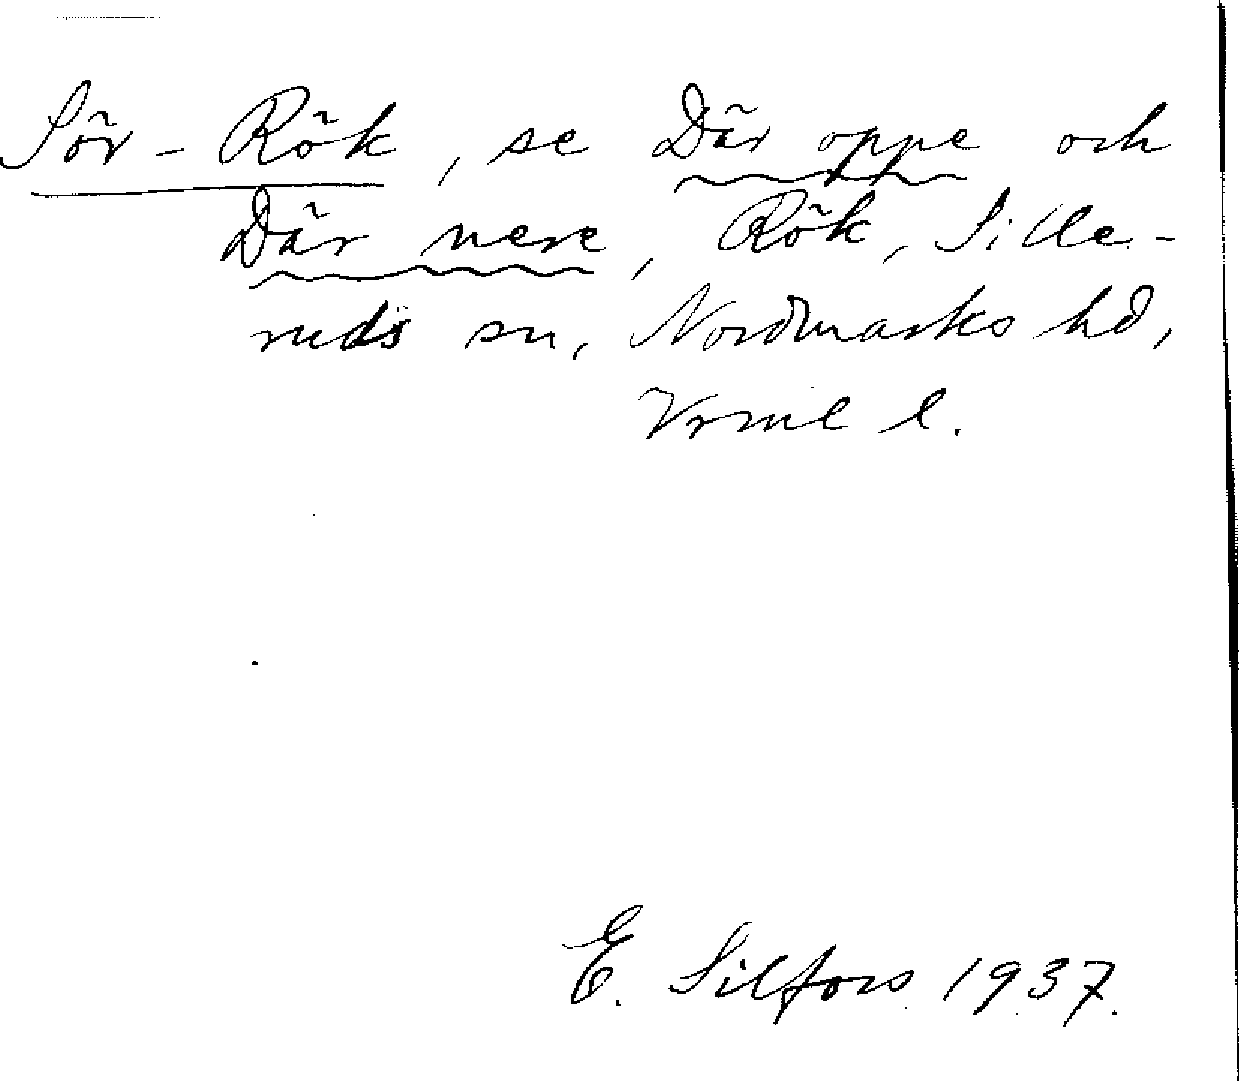 Sör-Rök, se Där oppe och
Där nere, Rök, Sille-
ruds sn, Nordmarks hd,
Vrml l.
E. Silfors 1937.